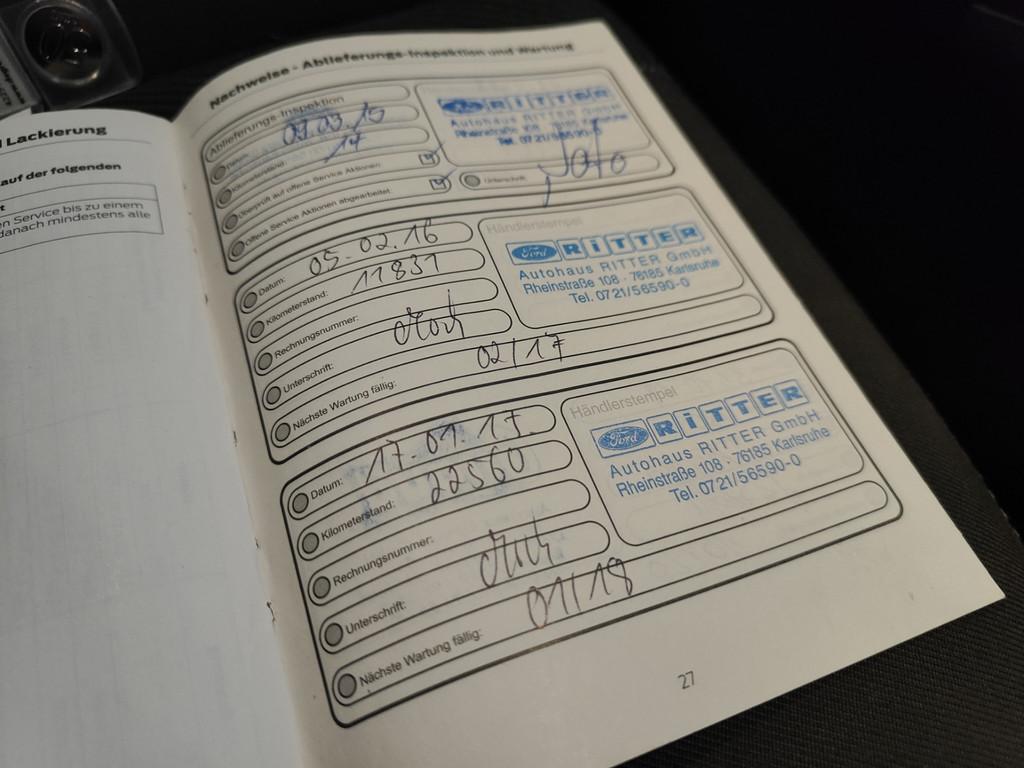 Lackierung
auf der folgenden
en Service bis zu einem
danach mindestens alle
Nachweise - Ablieferungs-Inspektion und Wartung
Ablieferungs-Inspektion
Datum:
Kilometerstand: 14
Überprüft auf offene Service Aktionen:
Offene Service Aktionen abgearbeitet:
Unterschrift:
RITTER
Autohaus RITTER GmbH
Tel. 0721/56590-0
Datum: 05.02.16
Kilometerstand: 11831
Rechnungsnummer:
Unterschrift:
Nächste Wartung fällig: 02/17
Händlerstempel
Ford RITTER
Autohaus RITTER GmbH
Rheinstraße 108 · 76185 Karlsruhe
Tel. 0721/56590-0
Datum: 17.01.17.
Kilometerstand: 22560
Rechnungsnummer:
Unterschrift:
Nächste Wartung fällig: 01/18
Händlerstempel
Ford RITTER
Autohaus RITTER GmbH
Rheinstraße 108 · 76185 Karlsruhe
Tel. 0721/56590-0
27